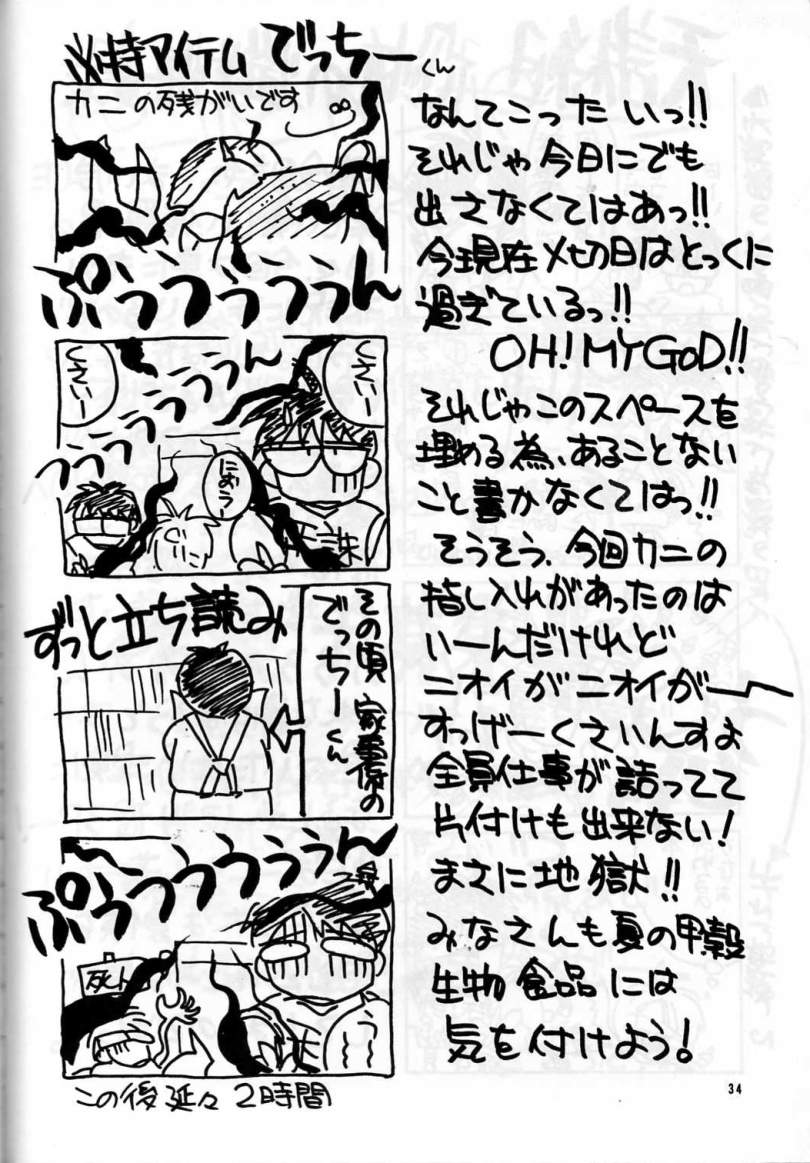 必特アイテム でっちーくん
カニの残がいです
ぷぅぅつぅぅぅん
くさいー
くさいー
つぅぅぅぅぅぅん
におうー
天誅
その頃 家事係の
でっちーくん
ずっと立ち読み
ぷぅぅつぅぅぅぅん
死人
この後延々2時間
なんてこったいっ!!
それじゃ今日にでも
出さなくてはあっ!!
今現在〆切日はとっくに
過ぎているっ!!
OH! MY GOD!!
それじゃこのスペースを
埋める為、あることない
こと書かなくてはっ!!
そうそう、今回カニの
差し入れがあったのは
いーんだけれど
ニオイがニオイがー
すっげーくさいんすよ
全員仕事が詰ってて
片付けも出来ない!
まさに地獄!!
みなさんも夏の甲殻
生物食品には
気を付けよう!
34